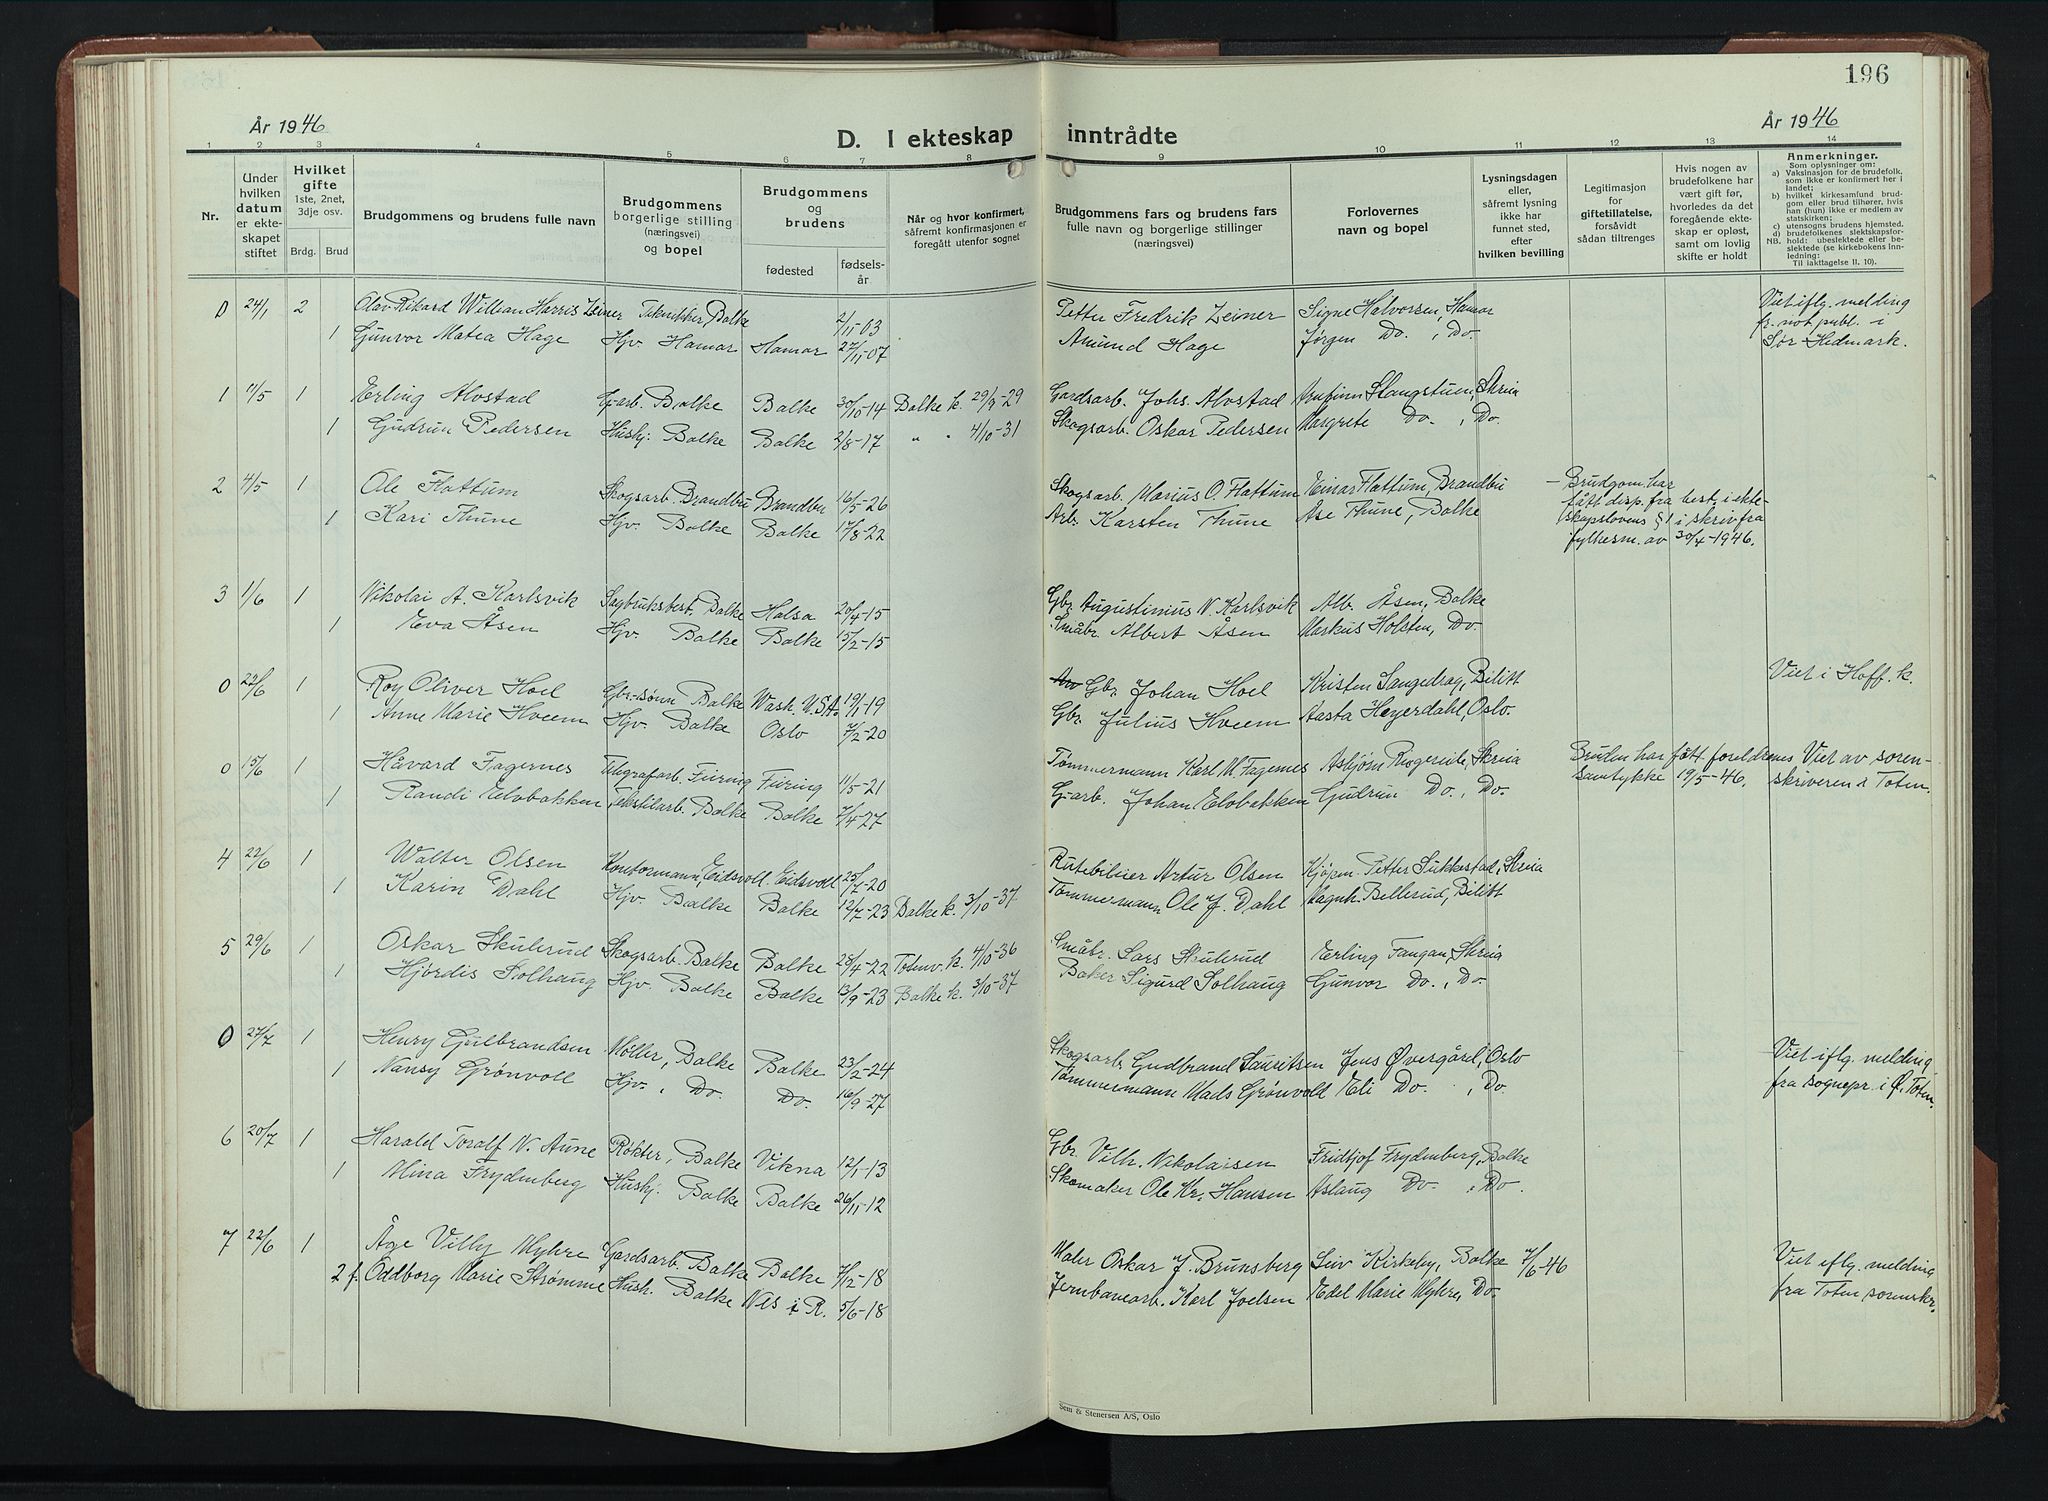 196
År 1946
D. I ekteskap inntrådte
År 1946
1 2 3 4 5 6 7 8 9 10 11 12 13 14
Nr.
Under hvilken datum er ekteskapet stiftet
Hvilket gifte 1ste, 2net, 3dje osv.
Brdg. Brud
Brudgommens og brudens fulle navn
Brudgommens borgerlige stilling (næringsvei) og bopel
Brudgommens og brudens
fødested
fødselsår
Når og hvor konfirmert, såfremt konfirmasjonen er foregått utenfor sognet
Brudgommens fars og brudens fars fulle navn og borgerlige stillinger (næringsvei)
Forlovernes navn og bopel
Lysningsdagen eller, såfremt lysning ikke har funnet sted, efter hvilken bevilling
Legitimasjon for giftetillatelse, forsåvidt sådan tiltrenges
Hvis nogen av brudefolkene har vært gift før, hvorledes da det foregående ekteskap er opløst, samt om lovlig skifte er holdt
Anmerkninger.
Som oplysninger om:
a) Vaksinasjon for de brudefolk, som ikke er konfirmert her i landet;
b) hvilket kirkesamfund brudgom eller brud tilhører, hvis han (hun) ikke er medlem av statskirken;
c) utensogns brudens hjemsted.
d) brudefolkenes slektskapsforhold: ubeslektede eller beslektede (se kirkebokens innledning:
NB. Til iakttagelse II. 10).
0 24/1 2 Olav Rikard William Harris Zeiner Tekniker, Balke 2/11-03 Petter Fredrik Zeiner Signe Halvorsen, Hamar Viet iflg. melding fr. not. publ. i Sør Hedmark.
1 Gunvor Matea Hage Hjv. Hamar Hamar 27/11-07 Amund Hage Jørgen Do. , Do.
1 11/5 1 Erling Alvstad G.arb. Balke Balke 30/10-14 Balke k. 29/9-29 Gardsarb. Johs. Alvstad Arnfinn Stangstuen, Skreia
1 Gudrun Pedersen Hushj. Balke Balke 2/8-17 " " 4/10-31 Skogsarb. Oskar Pedersen Margrete Do. , Do.
2 4/5 1 Ole Flattum Skogsarb. Brandbu Brandbu 16/5-26 Skogsarb. Marius O. Flattum Einar Flattum, Brandbu - Brudgom. har fått disp. fra best. i ekteskapslovens § 1 i skriv fra fylkesm. av 30/4-1946.
1 Kari Thune Hjv. Balke Balke 17/8-22 Arb. Karsten Thune Åse Thune, Balke
3 1/6 1 Nikolai A. Karlsvik Sagbruksbest. Balke Halsa 20/4-15 Gbr. Augustinius N. Karlsvik Alb. Åsen, Balke
1 Eva Åsen Hjv. Balke Balke 15/2-15 Småbr. Albert Åsen Markus Holsten, Do.
0 22/6 1 Roy Oliver Hoel Gbr.sønn Balke Wash. U.S.A. 19/1-19 Gbr. Johan Hoel Kristen Sangedrag, Bilitt Viet i Hoff k.
1 Anne Marie Hveem Hjv. Balke Oslo 7/2-20 Gbr. Julius Hveem Aasta Heyerdahl, Oslo.
0 15/6 1 Håvard Fagernes Telegrafarb. Feiring Feiring 11/5-21 Tømmermann Karl M. Fagernes Asbjørn Rogneite, Skreia Bruden har fått foreldrenes samtykke 19/5-46. Viet av sorenskriveren i Toten.
1 Randi Elvbakken Tekstilarb. Balke Balke 7/4-27 G.arb. Johan Elvbakken Gudrun Do. , Do.
4 22/6 1 Walter Olsen Kontormann, Eidsvoll Eidsvoll 25/7-20 Rutebileier Artur Olsen Kjøpm. Petter Sukkestad, Skreia
1 Karin Dahl Hjv. Balke Balke 12/7-23 Balke k. 3/10-37 Tømmermann Ole J. Dahl Magnh. Bellerud, Bilitt
5 29/6 1 Oskar Skulerud Skogsarb. Balke Balke 28/4-22 Totenv. k. 4/10-36 Småbr. Lars Skulerud Erling Fangan, Skreia
1 Hjørdis Solhaug Hjv. Balke Balke 13/9-23 Balke k. 3/10-37 Baker Sigurd Solhaug Gunvor Do. , Do.
0 27/7 1 Henry Gulbrandsen Møller, Balke Balke 23/2-24 Skogsarb. Gudbrand Lauritsen Jens Øvergård, Oslo Viet iflg. melding fra sognepr. i Ø. Toten.
1 Nansy Grønvoll Hjv. , Do. Do. 16/9-27 Tømmermann Mads Grønvoll Eli Do. , Do.
6 20/7 1 Harald Toralf N. Aune Røkter, Balke Vikna 12/1-13 Gbr. Vilh. Nikolaisen Fridtjof Frydenberg, Balke
1 Mina Frydenberg Hushj. Balke Balke 26/11-12 Skomaker Ole Kr. Hansen Aslaug Do. , Do.
7 22/6 1 Åge Villy Myhre Gardsarb. Balke Balke 7/12-18 Maler Oskar J. Brunsberg Leiv Kirkeby, Balke 7/6-46 Viet iflg. melding fra Toten sorenskr.
2 f. Oddborg Marie Strømme Hush. Balke Nes i R. 5/6-18 Jernbanearb. Karl Joelsen Edel Marie Myhre, Do.
Sem & Stenersen A/S, Oslo